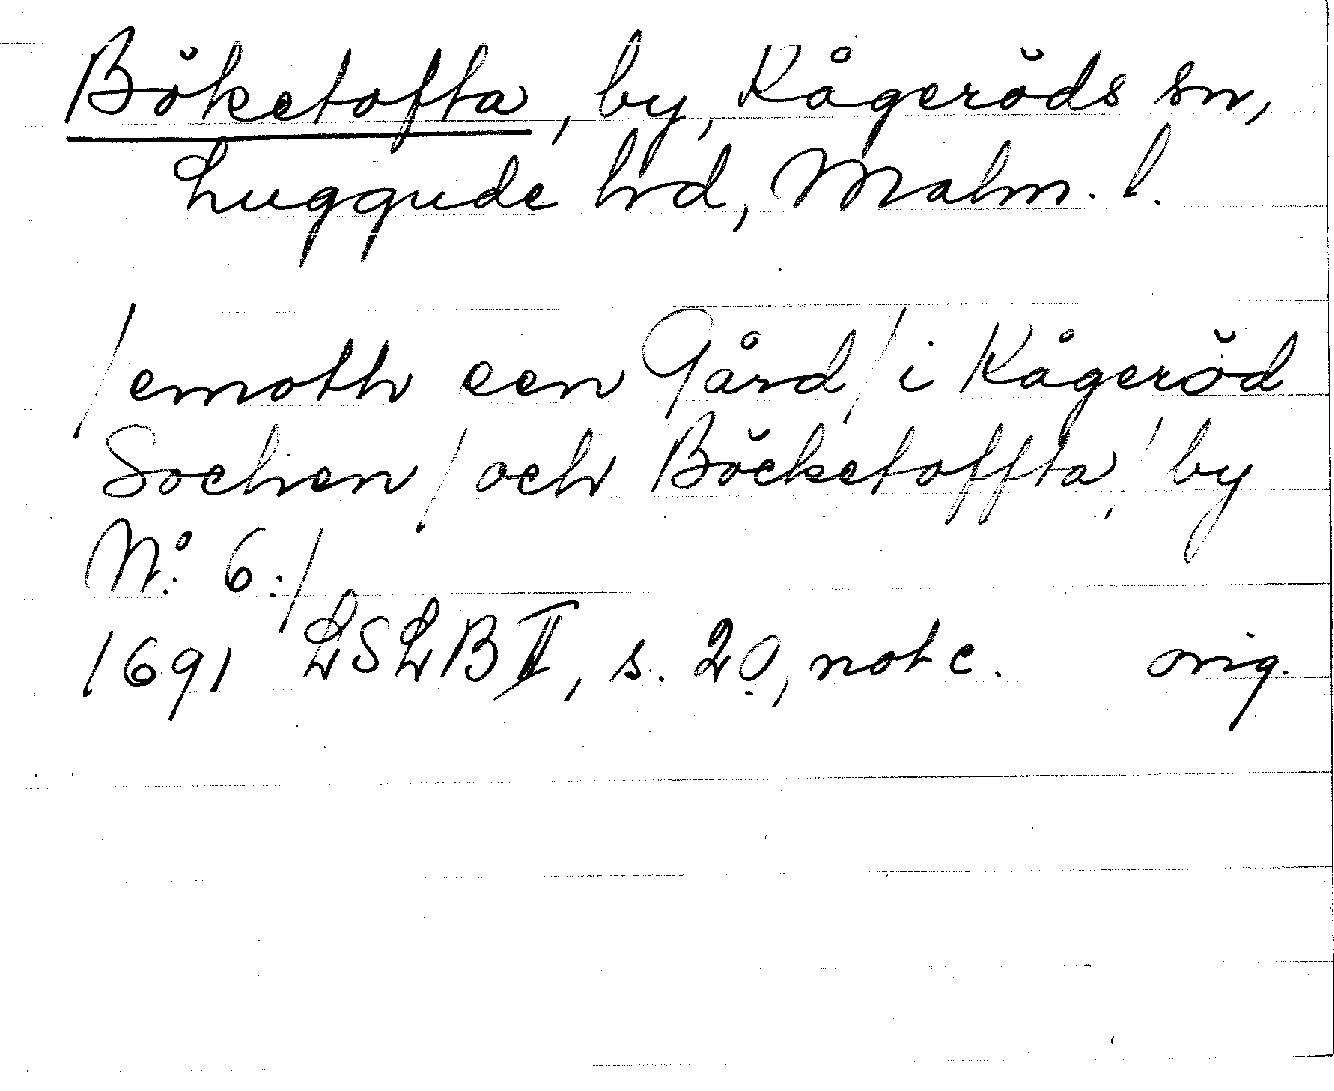 Böketofta, by, Kågeröds sn,
Luggude hrd, Malm. l.
/emoth een Gård/ i Kågeröd
Sochen/ och Böcketoffta, by
N:o 6:/
1691 LSLB II, s. 20, not c. orig.